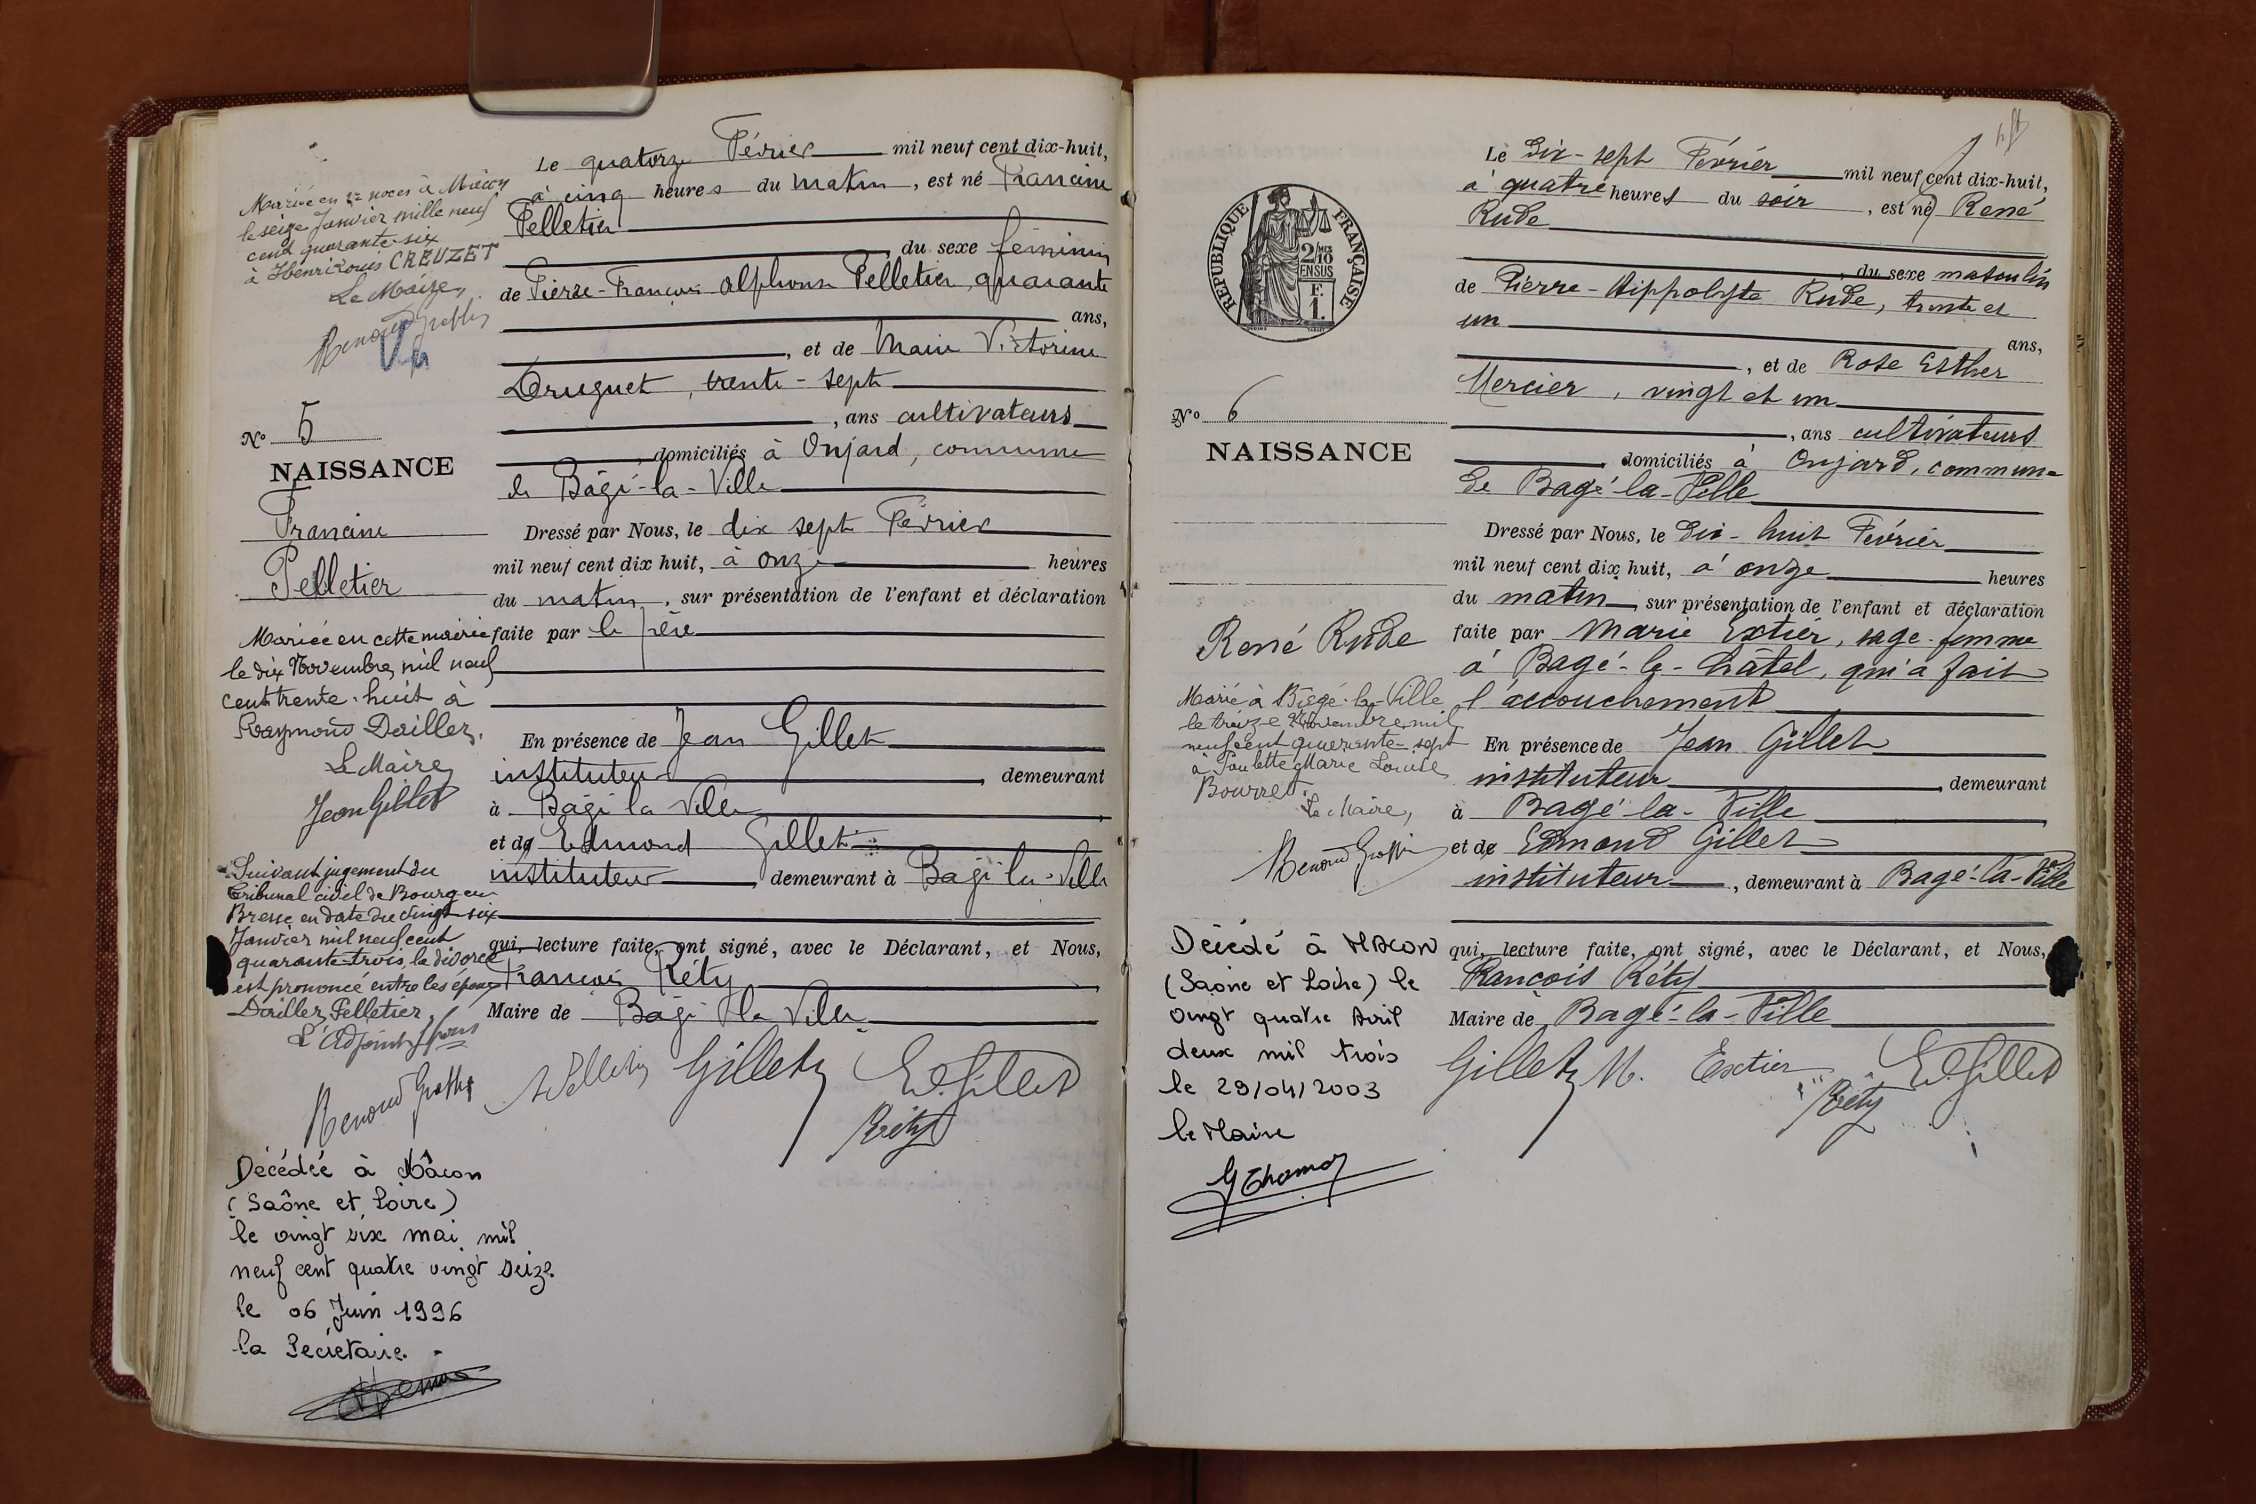 Le quatorze Février mil neuf cent dix-huit,
à cinq heures du matin, est né Francine
Pelletier
du sexe féminin
de Pierre-François Alphonse Pelletier, quarante
ans,
, et de Marie Victorine
Druguet, trente-sept
, ans cultivateurs
domiciliés à Onjard, commune
de Bâgé-la-Ville
Dressé par Nous, le dix sept Février
mil neuf cent dix huit, à onze heures
du matin, sur présentation de l'enfant et déclaration
faite par le père
En présence de Jean Gillet
instituteur, demeurant
à Bâgé la Ville
et de Edmond Gillet
instituteur, demeurant à Bâgé-la-Ville
qui, lecture faite, ont signé, avec le Déclarant, et Nous,
François Réty
Maire de Bâgé la Ville
A Pelletier Gillet E. Gillet
Réty
Mariée en 2es noces à Mâcon
le seize Janvier mille neuf
cent quarante-six
à Henri Louis CREUZET
Le Maire,
Vu
No 5
NAISSANCE
Francine
Pelletier
Mariée en cette mairie
le dix Novembre mil neuf
cent trente-huit à
Raymond Dailler.
Le Maire,
Jean Gillet
Suivant jugement du
tribunal civil de Bourg en
Bresse en date du vingt-six
Janvier mil neuf cent
quarante-trois, le divorce
est prononcé entre les époux
Dailler Pelletier.
L'Adjoint
Décédée à Mâcon
(Saône et Loire)
le vingt six mai mil
neuf cent quatre vingt seize
le 06 Juin 1996
la Secrétaire.
Le dix-sept Février mil neuf cent dix-huit,
à quatre heures du soir, est né René
Rude
, du sexe masculin
de Pierre-Hippolyte Rude, trente et
un
ans,
, et de Rose Esther
Mercier, vingt et un
, ans cultivateurs
domiciliés à Onjard, commune
de Bagé-la-Ville
Dressé par Nous, le dix-huit Février
mil neuf cent dix huit, à onze heures
du matin, sur présentation de l'enfant et déclaration
faite par Marie Extier, sage-femme
à Bagé-le-Châtel, qui a fait
l'accouchement
En présence de Jean Gillet
instituteur, demeurant
à Bagé-la-Ville
et de Edmond Gillet
instituteur, demeurant à Bagé-la-Ville
qui, lecture faite, ont signé, avec le Déclarant, et Nous,
François Réty
Maire de Bagé-la-Ville
Gillet M. Extier E. Gillet
Réty
RÉPUBLIQUE FRANÇAISE
2/10 MES
EN SUS
F.
1.
No 6
NAISSANCE
René Rude
Marié à Bâgé-la-Ville
le treize Novembre mil
neuf cent quarante-sept
à Paulette Marie Louise
Bourret.
Le Maire,
Décédé à MACON
(Saône et Loire) le
vingt quatre Avril
deux mil trois
le 29/04/2003
le Maire
G Thomas